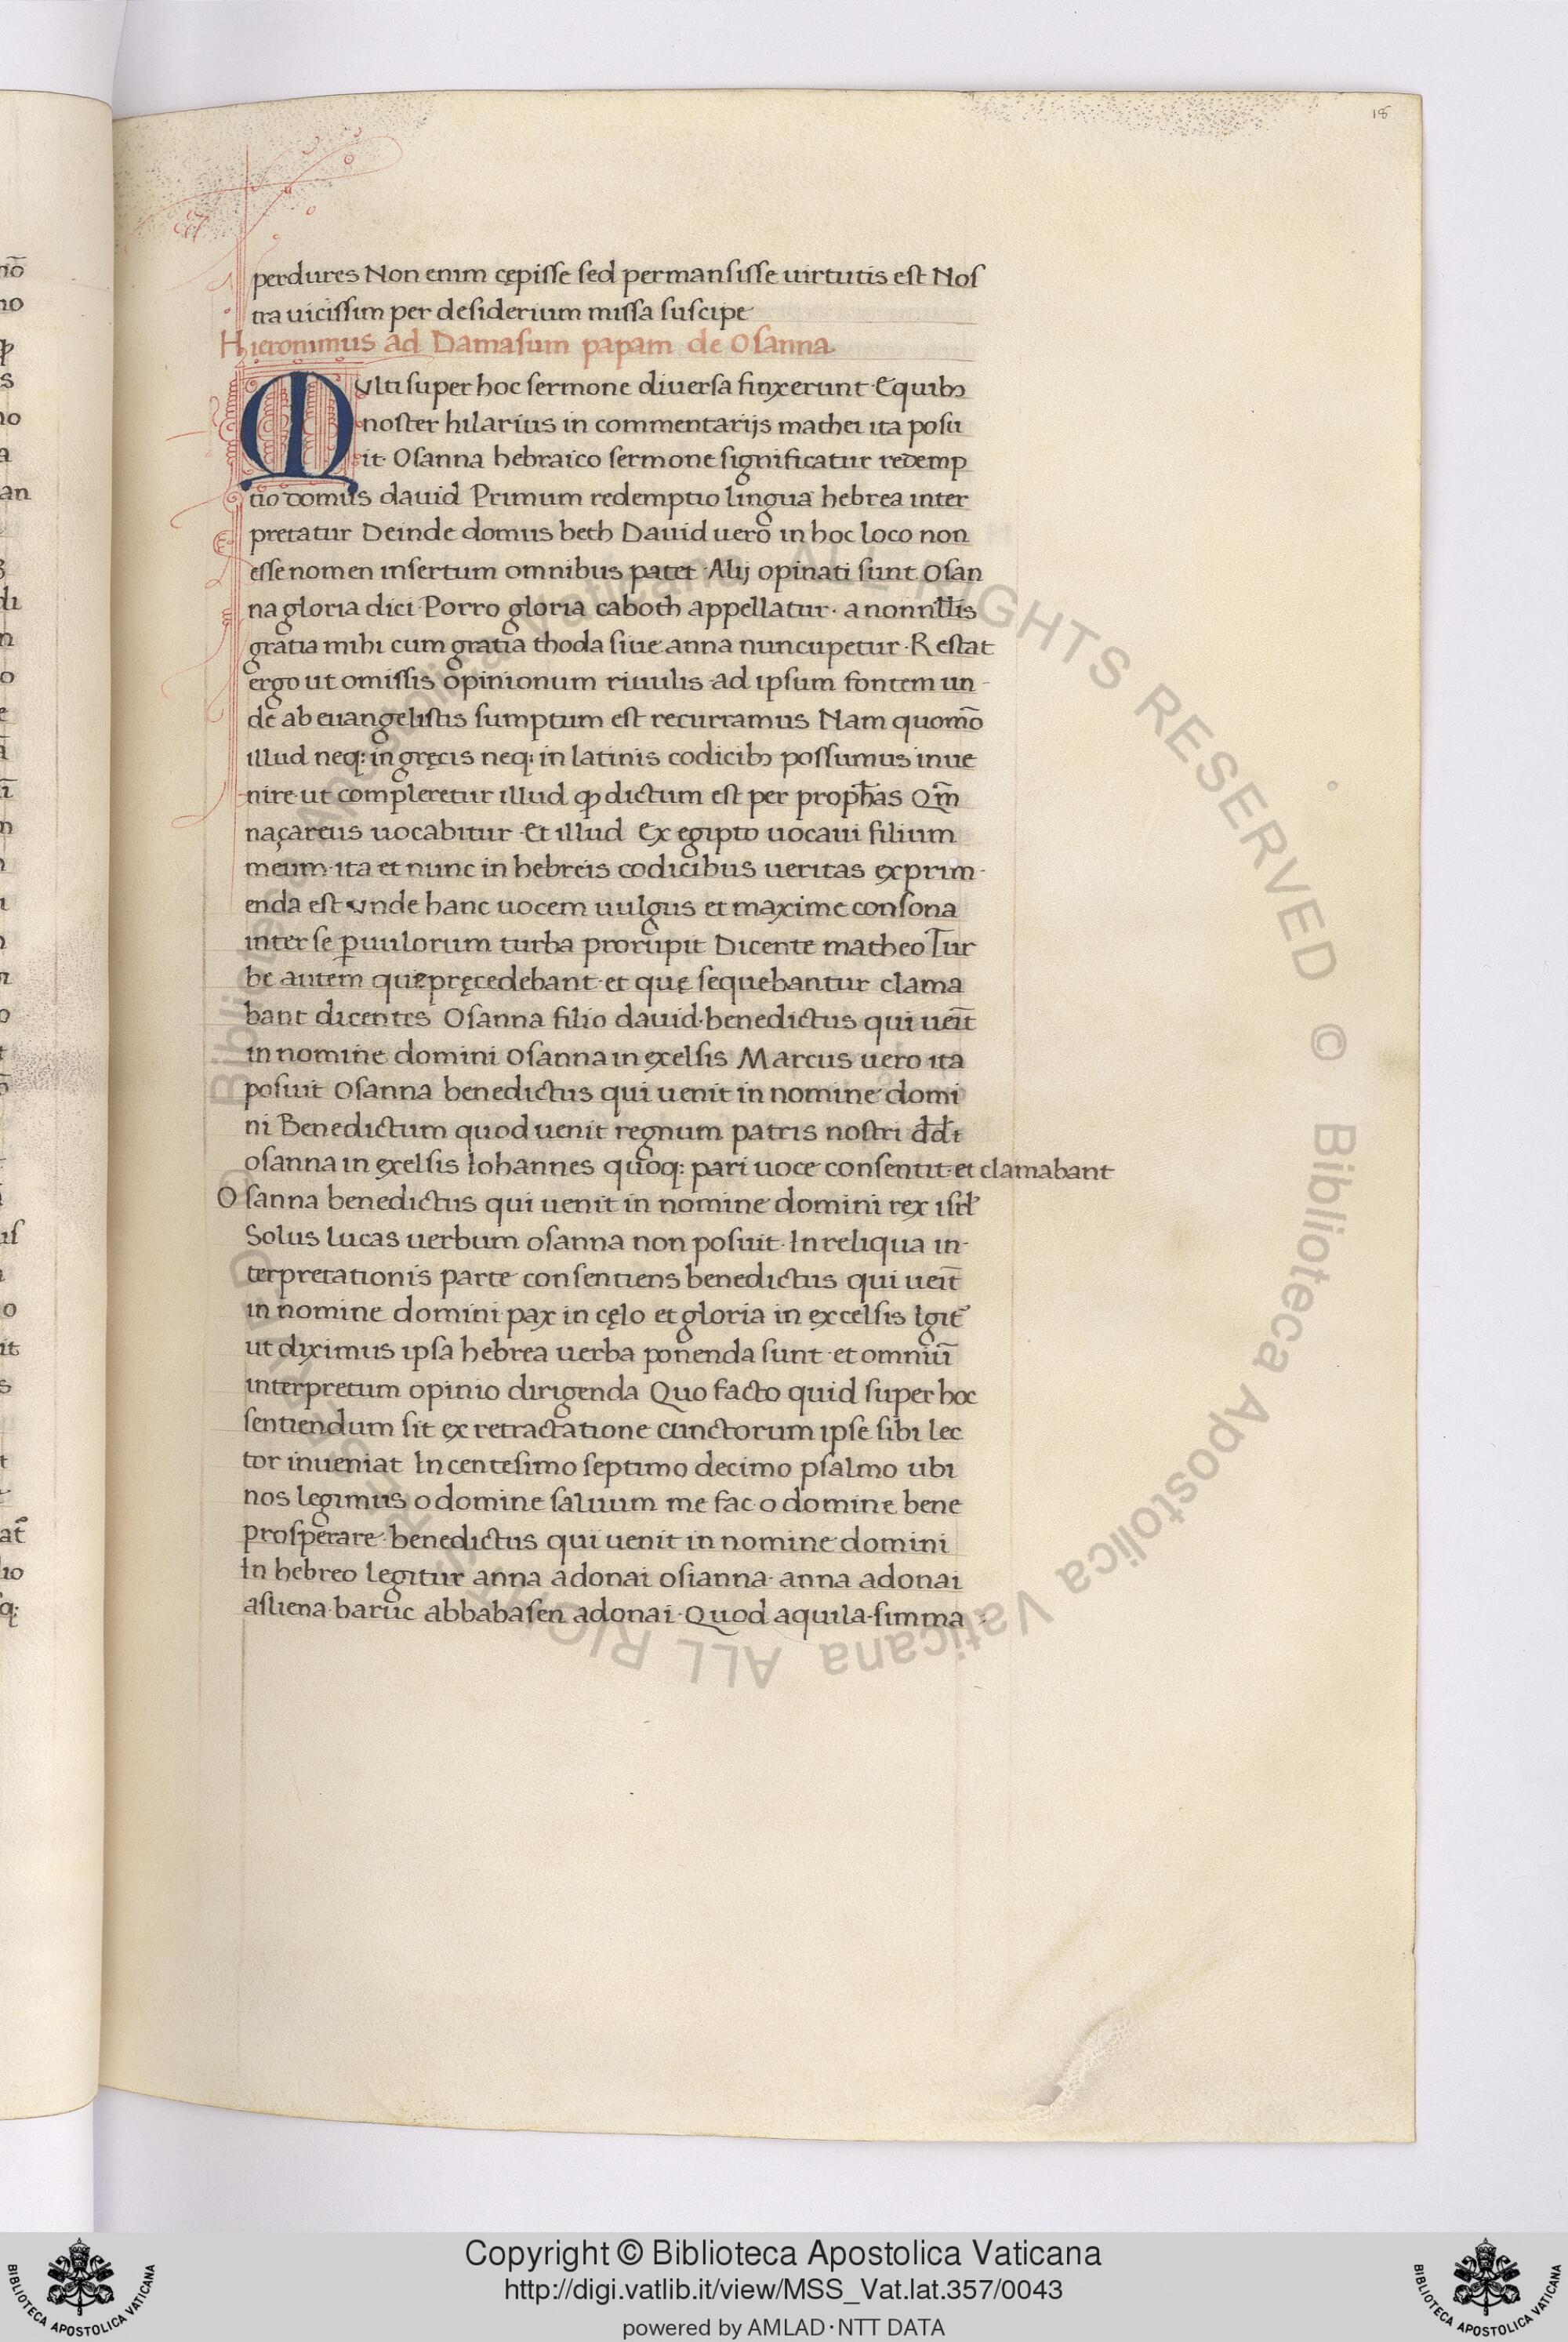 18
perdures Non enim cępisse sed permansisse uirtutis est Nos
tra uicissim per desiderium missa suscipe
Hieronimus ad Damasum papam de Osanna
Multi super hoc sermone diuersa finxerunt E quibꝫ
noster hilarius in commentarijs mathei ita posu
it· Osanna hebraico sermone significatur redemp
tio domus dauid Primum redemptio lingua hebrea inter
pretatur Deinde domus beth Dauid uero in hoc loco non
esse nomen insertum omnibus patet Alij opinati sunt Osan
na gloria dici Porro gloria caboth appellatur· a nonnłłis
gratia mihi cum gratia thoda siue anna nuncupetur· Restat
ergo ut omissis opinionum riuulis ad ipsum fontem un-
de ab euangelistis sumptum est recurramus Nam quomō
illud neq: in gręcis neq: in latinis codicibꝫ possumus inue
nire ut compleretur illud ꝙ dictum est per prophas Qm̄
naçareus uocabitur Et illud Ex egipto uocaui filium
meum· ita et nunc in hebreis codicibus ueritas exprim-
enda est unde hanc uocem uulgus et maxime consona
inter se ꝑuulorum turba prorupit Dicente matheo Tur
be autem quę pręcedebant· et quę sequebantur clama
bant dicentes Osanna filio dauid· benedictus qui ueīt
in nomine domini osanna in exelsis Marcus uero ita
posuit Osanna benedictus qui uenit in nomine domi
ni Benedictum quod uenit regnum patris nostri đđt
osanna in exelsis Iohannes quoq: pari uoce consentit· et clamabant
Osanna benedictus qui uenit in nomine domini rex isrł
Solus lucas uerbum osanna non posuit· In reliqua in-
terpretationis parte consentiens benedictus qui ueīt
in nomine domini pax in cęlo et gloria in excelsis Igit᷑
ut diximus ipsa hebrea uerba ponenda sunt· et omniū
interpretum opinio dirigenda Quo facto quid super hoc
sentiendum sit ex retractatione cunctorum ipse sibi lec
tor inueniat In centesimo septimo decimo psalmo ubi
nos legimus o domine saluum me fac o domine bene
prosperare· benedictus qui uenit in nomine domini
In hebreo legitur anna adonai osianna· anna adonai
asliena· baruc abbabasen adonai· Quod aquila· simma-
Copyright © Biblioteca Apostolica Vaticana
http://digi.vatlib.it/view/MSS_Vat.lat.357/0043
powered by AMLAD·NTT DATA